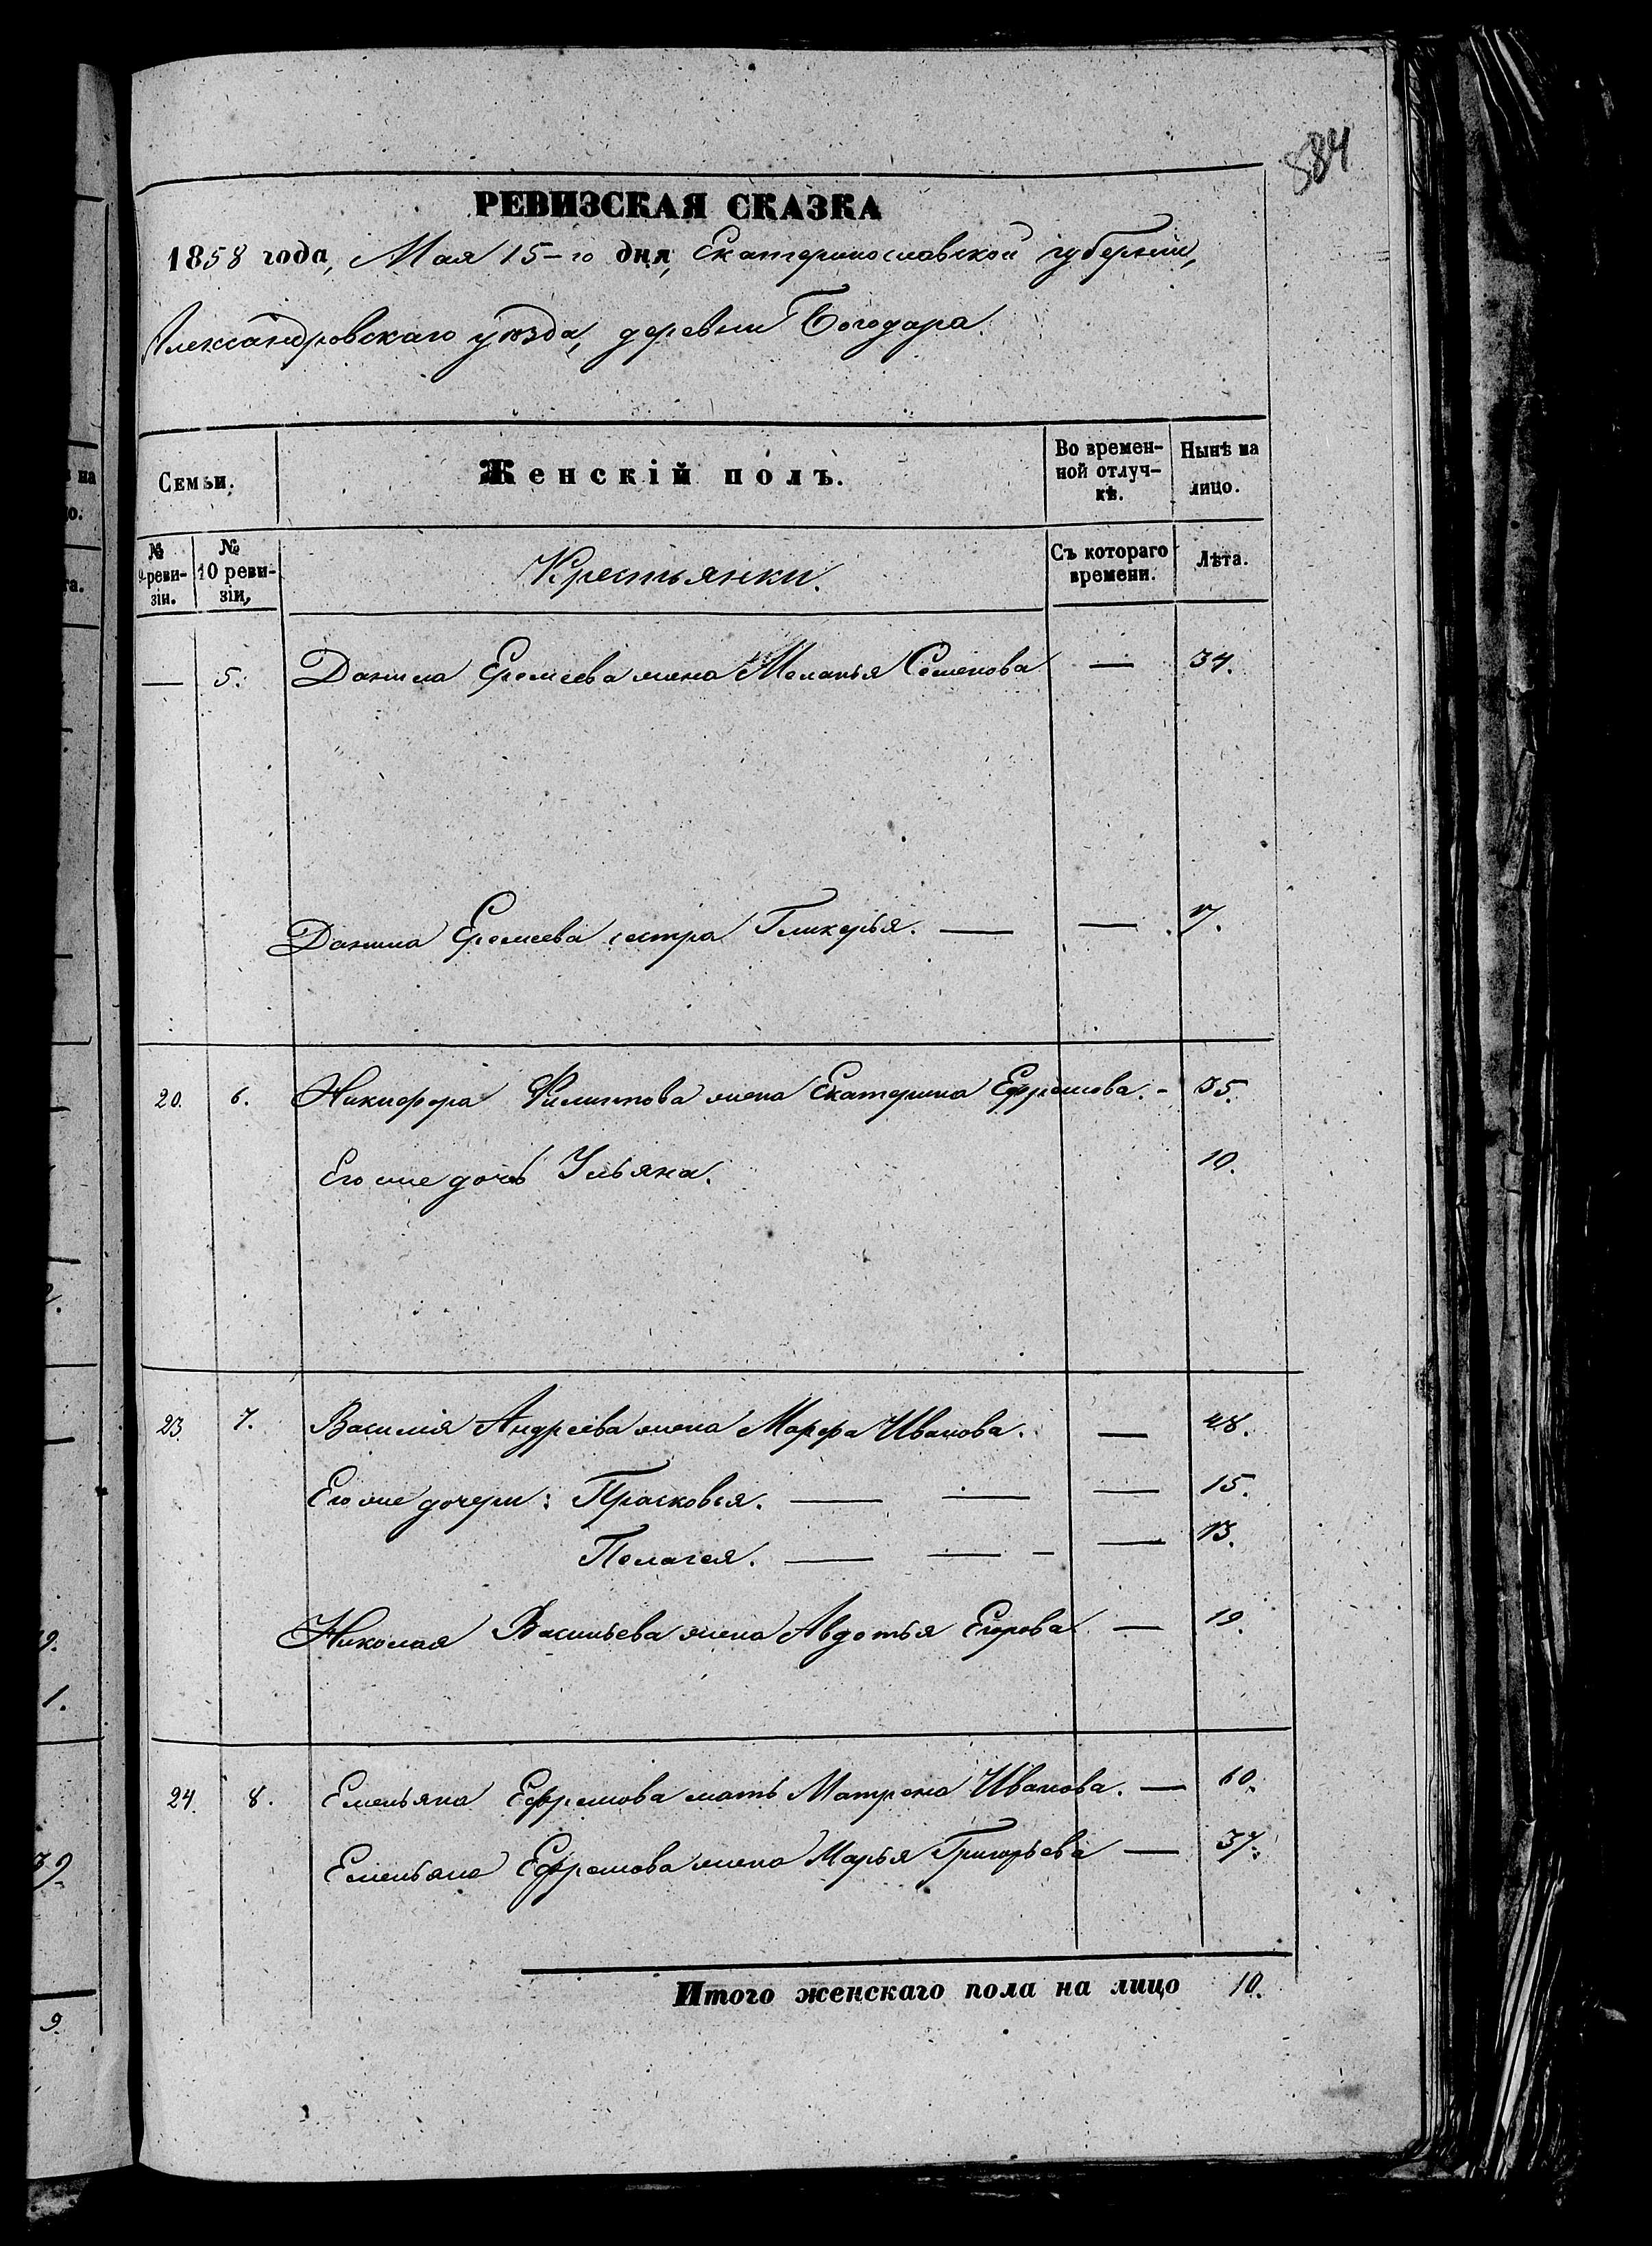 584
РЕВИЗСКАЯ СКАЗКА
1858 года, Мая 15-го дня, Екатеринославской губернии,
Александровскаго уѣзда, деревни Богодара.
Семьи.
Женскій полъ.
Во времен-
ной отлуч-
кѣ.
Нынѣ на
лицо.
№
9 реви-
зіи.
№
10 реви-
зіи,
Крестьянки.
Съ котораго
времени.
Лѣта.
— 5. Данила Еремеева жена Меланья Семенова — 34.
Данила Еремеева сестра Гликерья. — —
20. 6. Никифора Филипова жена Екатерина Ефремова. - 35.
Его же дочь Ульяна. 10.
23. 7. Василія Андреева жена Марфа Иванова. — 48.
Его же дочери: Прасковья. — — — 15.
Пелагея. — — - — 13.
Николая Васильева жена Авдотья Егорова — 19.
24. 8. Емельяна Ефремова мать Матрена Иванова. — 60.
Емельяна Ефремова жена Марья Григорьева — 37.
Итого женскаго пола на лицо 10.